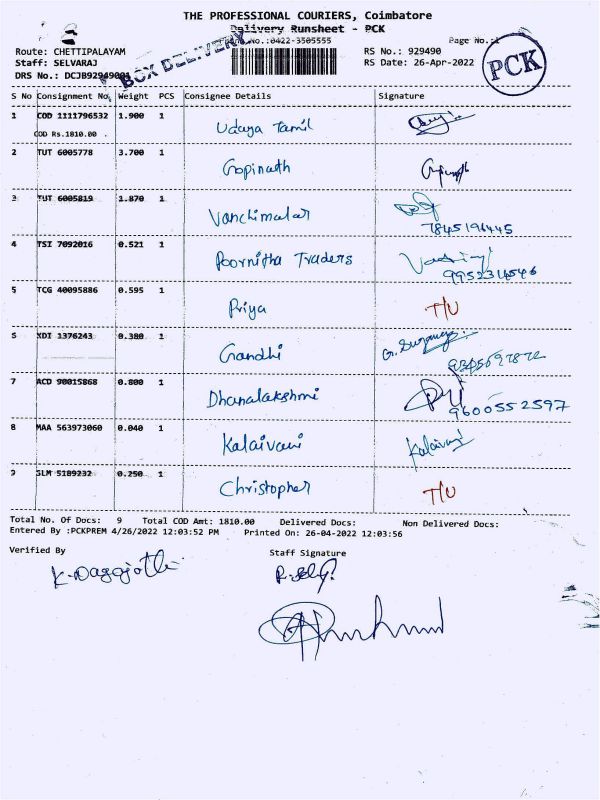 THE PROFESSIONAL COURIERS, Coimbatore
Delivery Runsheet - PCK
Phone No.:0422-3505555 Page No.:1
Route: CHETTIPALAYAM RS No.: 929490
Staff: SELVARAJ RS Date: 26-Apr-2022
BOX DELIVERY
PCK
S No Consignment No. Weight PCS Consignee Details Signature
1 COD 1111796532 1.900 1 Udaya Tamil
COD Rs.1810.00 .
2 TUT 6005778 3.700 1 Gopinath
3 TUT 6005819 1.870 1 Vanchimalar
7845194445
4 TSI 7092016 0.521 1 Poornitha Traders
9952314546
5 TCG 40095886 0.595 1 Priya T/U
6 XDI 1376243 0.380 1 Gandhi
7 ACD 90015868 0.800 1 Dhanalakshmi
9600552597
8 MAA 563973060 0.040 1 Kalaivani Kalaivani
9 SLM 5189232 0.250 1 Christopher T/U
Total No. Of Docs: 9 Total COD Amt: 1810.00 Delivered Docs: Non Delivered Docs:
Entered By :PCKPREM 4/26/2022 12:03:52 PM Printed On: 26-04-2022 12:03:56
Verified By Staff Signature